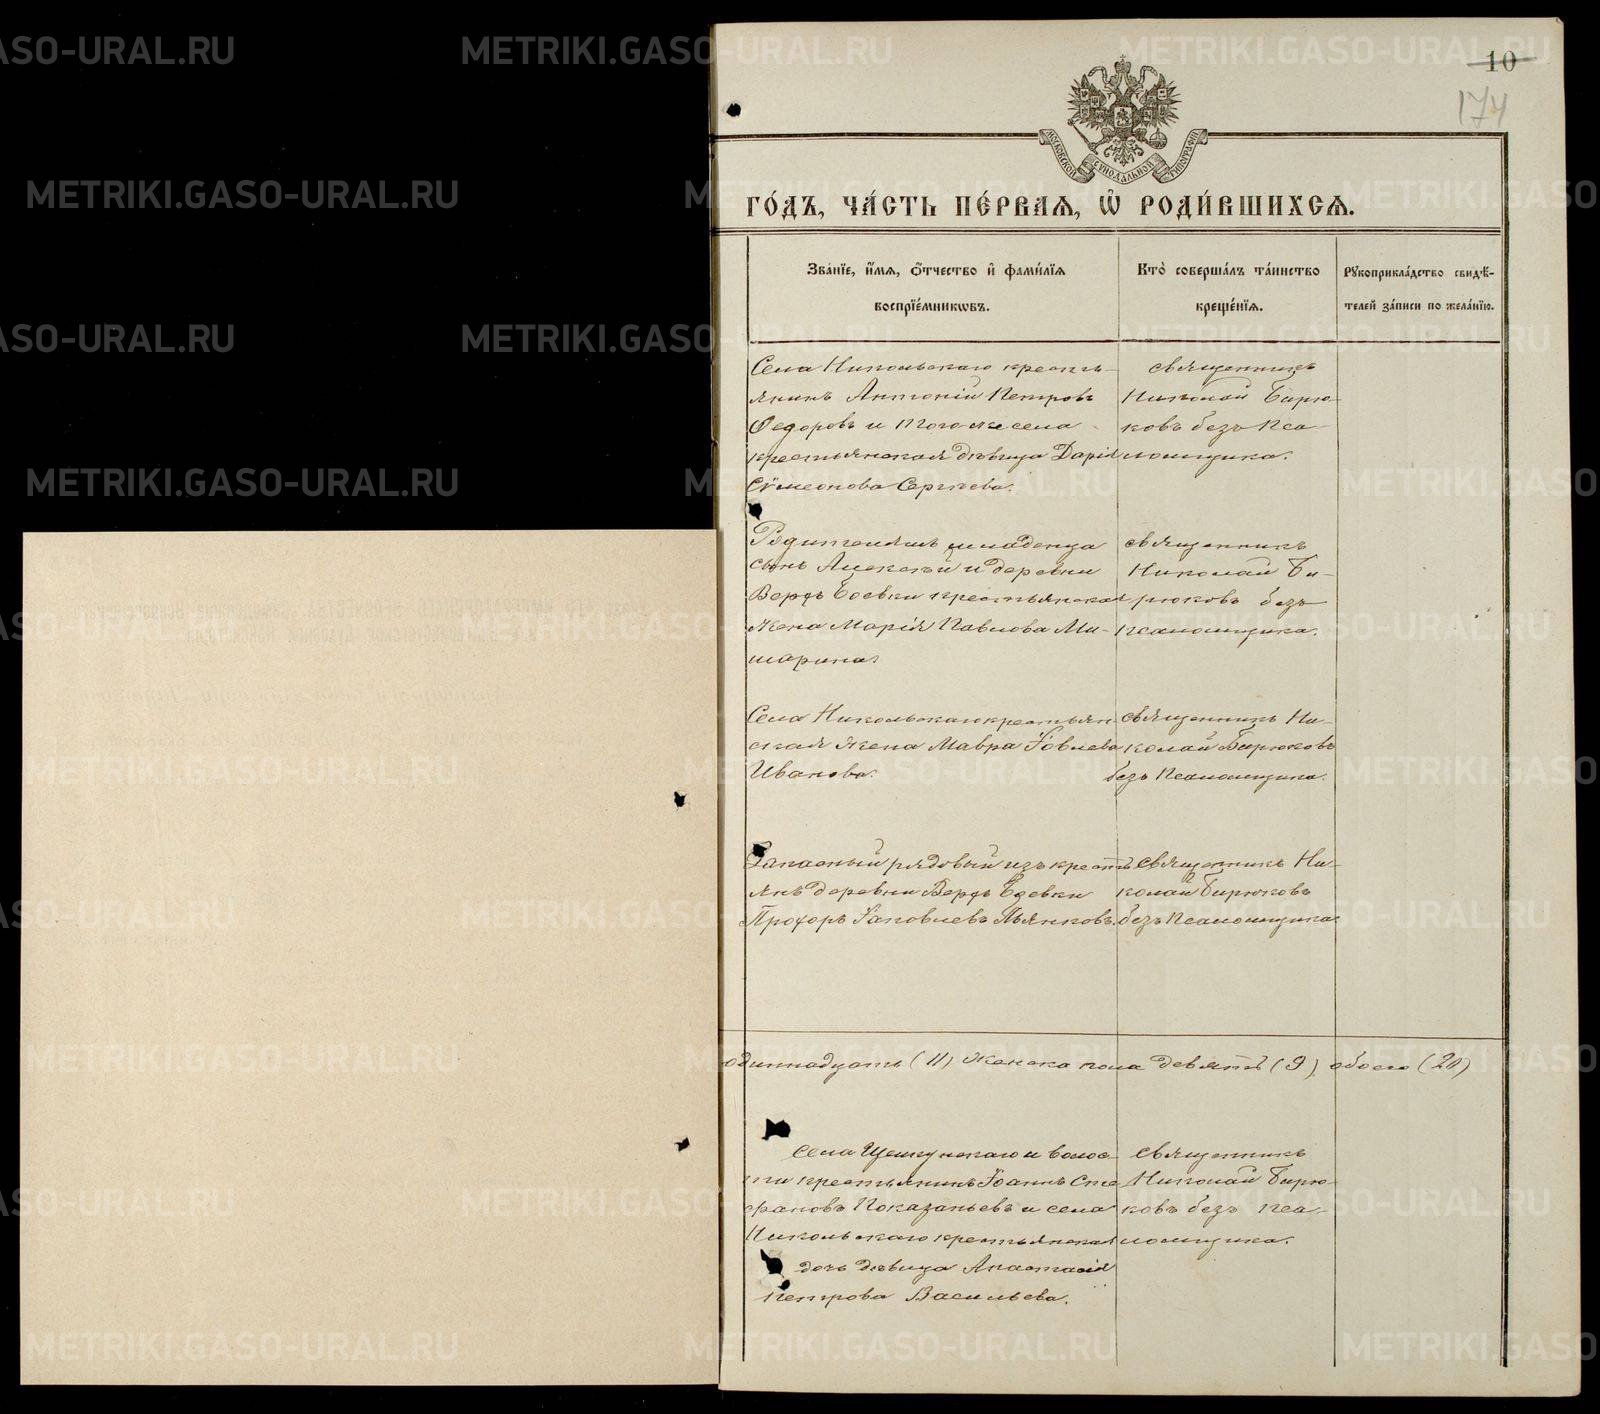 10
174
МОСКОВСКОЙ СѴНОДАЛЬНОЙ ТИПОГРАФІИ
ГО́ДЪ, ЧА́СТЬ ПЕ́РВАѦ, Ѡ҆ РОДИ́ВШИХСѦ.
Зва́нїе, и҆́мѧ, ѻ҆́тчество и҆ фами́лїѧ
воспрїе́мникѡвъ.
Кто̀ соверша́лъ та́инство
креще́нїѧ.
Рꙋкоприкла́дство свидѣ́-
телей за́писи по жела́нїю.
Села Никольскаго кресть-
янинъ Антоній Петровъ
Ѳедоровъ и того-же села
крестьянская дѣвица Дарія
Сѵмеонова Сергѣева.
священникъ
Николай Бирю-
ковъ безъ Пса-
ломщика.
Родителямъ младенца
сынъ Алексѣй и деревни
Верхъ Боевки крестьянская
жена Марія Павлова Ми-
шарина.
священникъ
Николай Би-
рюковъ безъ
Псаломщика.
Села Никольскаго крестьян-
ская жена Мавра Іовлева
Иванова.
священникъ Ни-
колай Бирюковъ
безъ Псаломщика.
Запасный рядовый изъ кресть-
янъ деревни Верхъ Боевки
Прохоръ Іаковлевъ Пьянковъ.
священникъ Ни-
колай Бирюковъ
безъ Псаломщика
одиннадцать (11) женска пола девять (9), обоего (20)
села Щелкунскаго и волос-
ти крестьянинъ Іоаннъ Сте-
фановъ Показаньевъ и села
Никольскаго крестьянская
дочь дѣвица Анастасія
Петрова Васильева.
священникъ
Николай Бирю-
ковъ безъ Пса-
ломщика.
METRIKI.GASO-URAL.RU